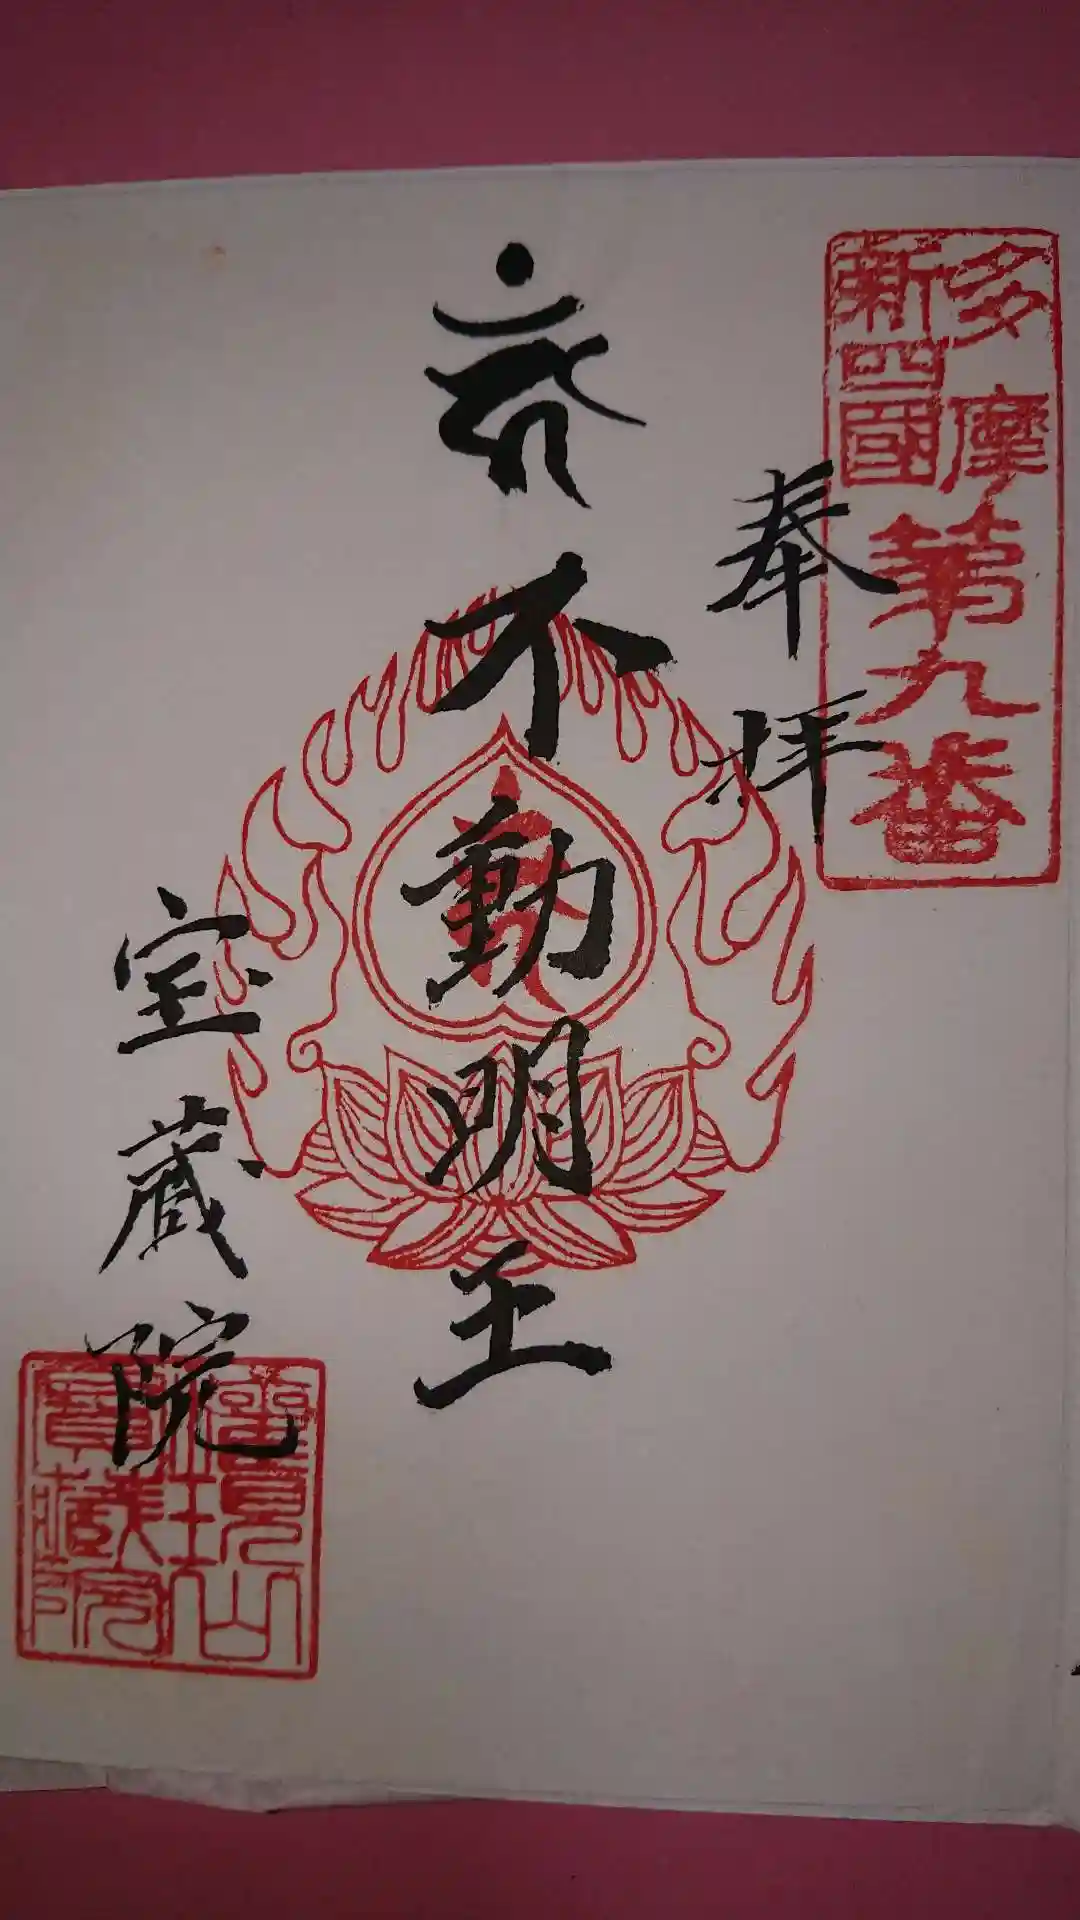 多摩
新四國
第九番
奉拝
不動明王
宝蔵院
寳藏院